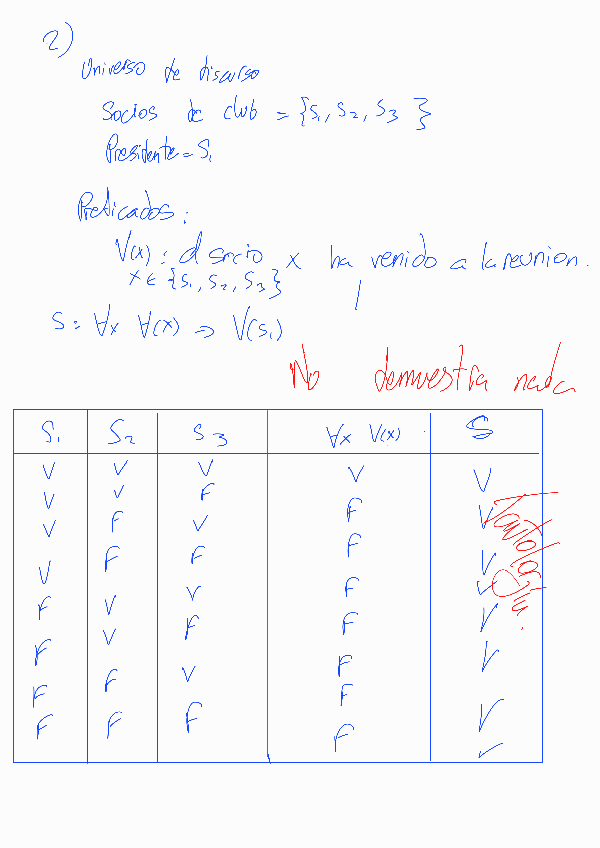 2)
Universo de discurso
Socios de club = {S₁, S₂, S₃ }
Presidente = S₁
Predicados:
V(x): el socio x ha venido a la reunion.
x ∈ {S₁, S₂, S₃}
S = ∀x V(x) => V(S₁)
No demuestra nada
S₁ S₂ S₃ ∀x V(x) S
V V V V V
V V F F V
V F V F V
V F F F V
F V V F V
F V F F V
F F V F V
F F F F V
Tautología.